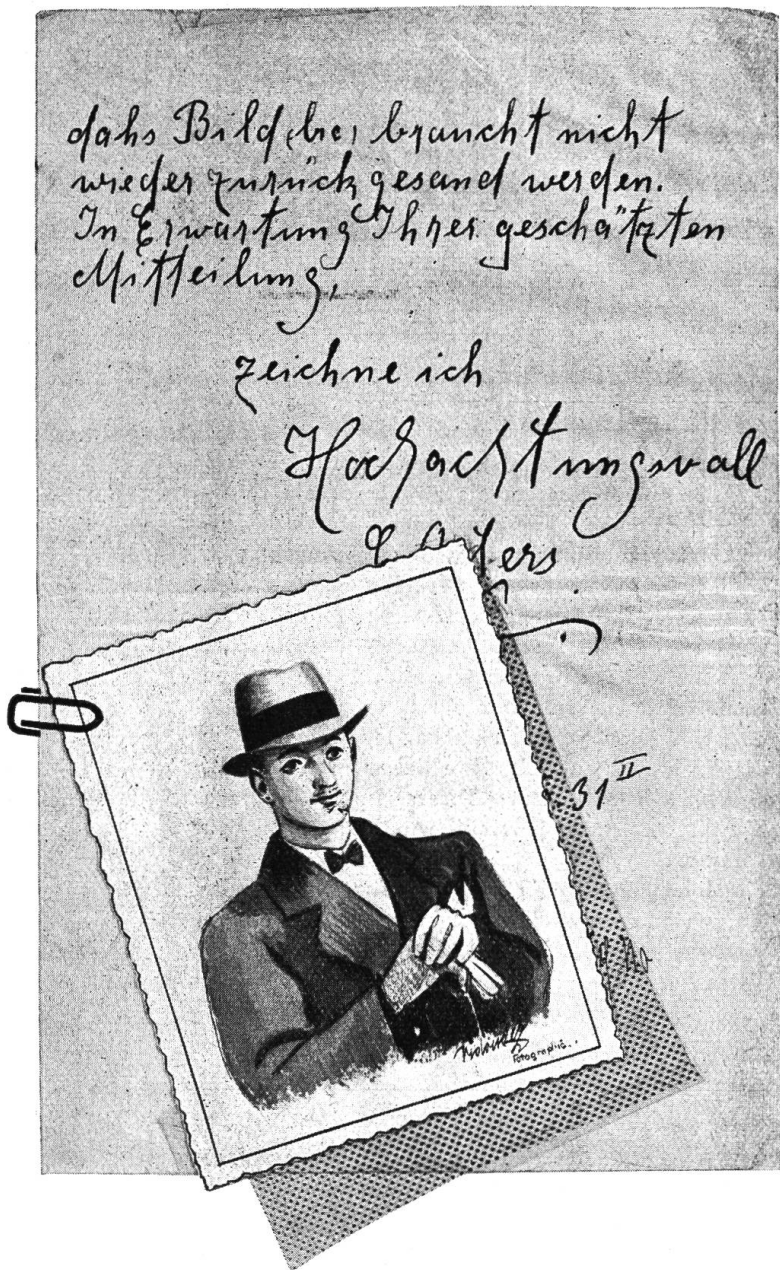 dahs Bild, braucht nicht
wieder zurück gesand werden.
In Erwartung Ihrer geschätzten
Mitteilung,
zeichne ich
Hochachtungsvoll
31 II
Fotographie..